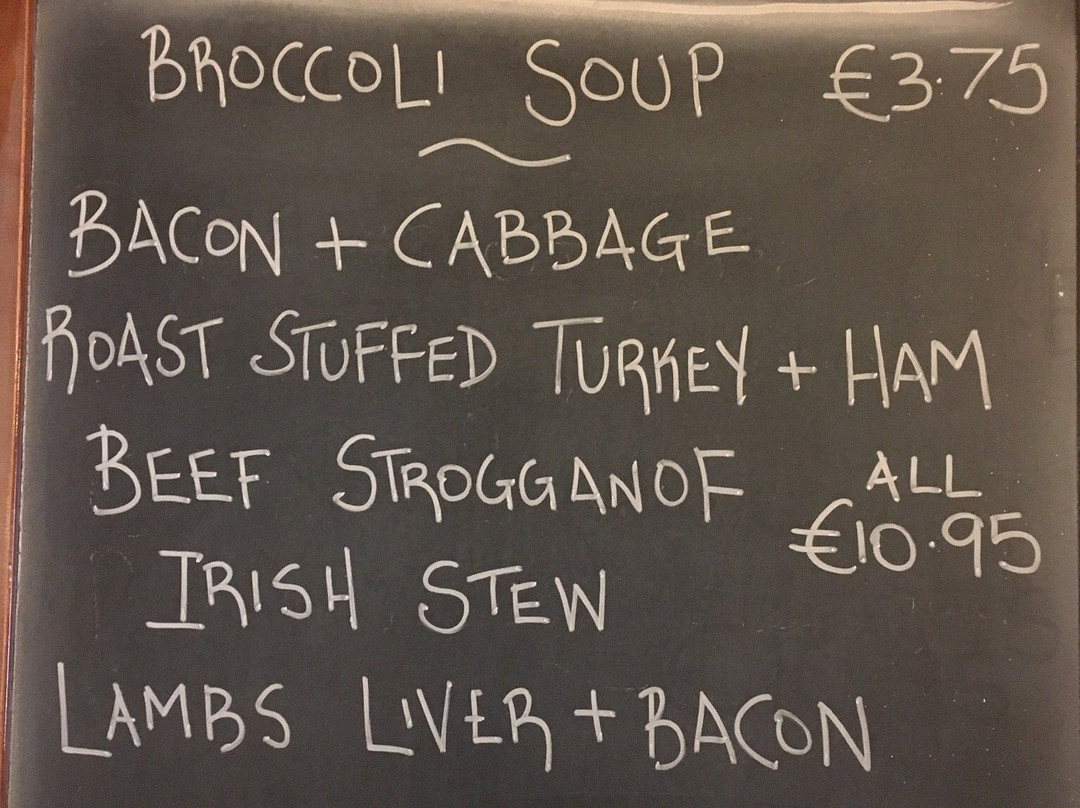 BROCCOLI SOUP €3.75
BACON + CABBAGE
ROAST STUFFED TURKEY + HAM
BEEF STROGGANOF
ALL
€10.95
IRISH STEW
LAMBS LIVER + BACON